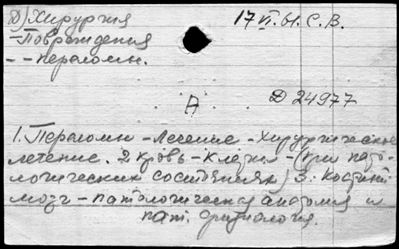 Д) Хирургия 17 VI. Н. С. В.
-Повреждения
- - переломы.
А Д 24977
1. Переломы - Лечение - Хирургическое
лечение. 2 Кровь - Клетки - (при пато-
логических состояниях) 3. Костный
мозг - патологическая анатомия и
пат. физиология.